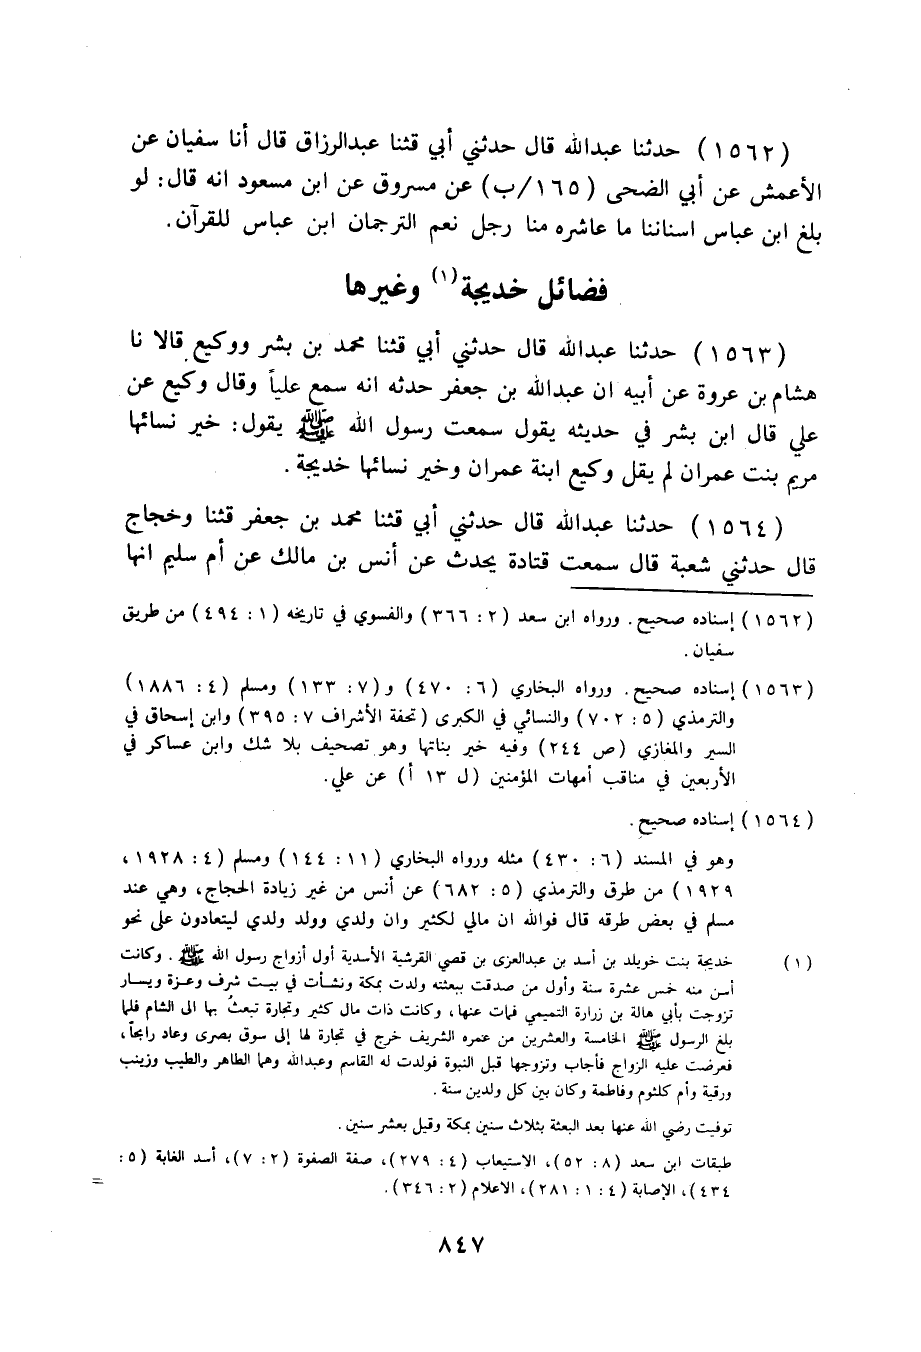 (١٥٦٢) حدثنا عبدالله قال حدثني أبي قثنا عبدالرزاق قال أنا سفيان عن
الأعمش عن أبي الضحى (١٦٥/ب) عن مسروق عن ابن مسعود انه قال: لو
بلغ ابن عباس اسناننا ما عاشره منا رجل نعم الترجمان ابن عباس للقرآن.
فضائل خديجة(١) وغيرها
(١٥٦٣) حدثنا عبدالله قال حدثني أبي قثنا محمد بن بشر ووكيع قالا نا
هشام بن عروة عن أبيه ان عبدالله بن جعفر حدثه انه سمع علياً وقال وكيع عن
علي قال ابن بشر في حديثه يقول سمعت رسول الله ﷺ يقول: خير نسائها
مريم بنت عمران لم يقل وكيع ابنة عمران وخير نسائها خديجة.
(١٥٦٤) حدثنا عبدالله قال حدثني أبي قثنا محمد بن جعفر قثنا وحجاج
قال حدثني شعبة قال سمعت قتادة يحدث عن أنس بن مالك عن أم سليم انها
(١٥٦٢) إسناده صحيح. ورواه ابن سعد (٢: ٣٦٦) والفسوي في تاريخه (١: ٤٩٤) من طريق
سفيان.
(١٥٦٣) إسناده صحيح. ورواه البخاري (٦: ٤٧٠) و(٧: ١٣٣) ومسلم (٤: ١٨٨٦)
والترمذي (٥: ٧٠٢) والنسائي في الكبرى (تحفة الأشراف ٧: ٣٩٥) وابن إسحاق في
السير والمغازي (ص ٢٤٤) وفيه خير بناتها وهو تصحيف بلا شك وابن عساكر في
الأربعين في مناقب أمهات المؤمنين (ل ١٣ أ) عن علي.
(١٥٦٤) إسناده صحيح.
وهو في المسند (٦: ٤٣٠) مثله ورواه البخاري (١١: ١٤٤) ومسلم (٤: ١٩٢٨،
١٩٢٩) من طرق والترمذي (٥: ٦٨٢) عن أنس من غير زيادة الحجاج، وهي عند
مسلم في بعض طرقه قال فوالله ان مالي لكثير وان ولدي وولد ولدي ليتعادون على نحو
(١) خديجة بنت خويلد بن أسد بن عبدالعزى بن قصي القرشية الأسدية أول أزواج رسول الله ﷺ. وكانت
أسن منه خمس عشرة سنة وأول من صدقت ببعثته ولدت بمكة ونشأت في بيت شرف وعزة ويسار
تزوجت بأبي هالة بن زرارة التميمي فمات عنها، وكانت ذات مال كثير وتجارة تبعثُ بها الى الشام فلما
بلغ الرسول ﷺ الخامسة والعشرين من عمره الشريف خرج في تجارة لها إلى سوق بصرى وعاد رابحاً،
فعرضت عليه الزواج فأجاب وتزوجها قبل النبوة فولدت له القاسم وعبدالله وهما الطاهر والطيب وزينب
ورقية وأم كلثوم وفاطمة وكان بين كل ولدين سنة.
توفيت رضي الله عنها بعد البعثة بثلاث سنين بمكة وقيل بعشر سنين.
طبقات ابن سعد (٨: ٥٢)، الاستيعاب (٤: ٢٧٩)، صفة الصفوة (٢: ٧)، أسد الغابة (٥:
٤٣٤)، الإصابة (٤: ١: ٢٨١)، الاعلام (٢: ٣٤٦).
=
٨٤٧